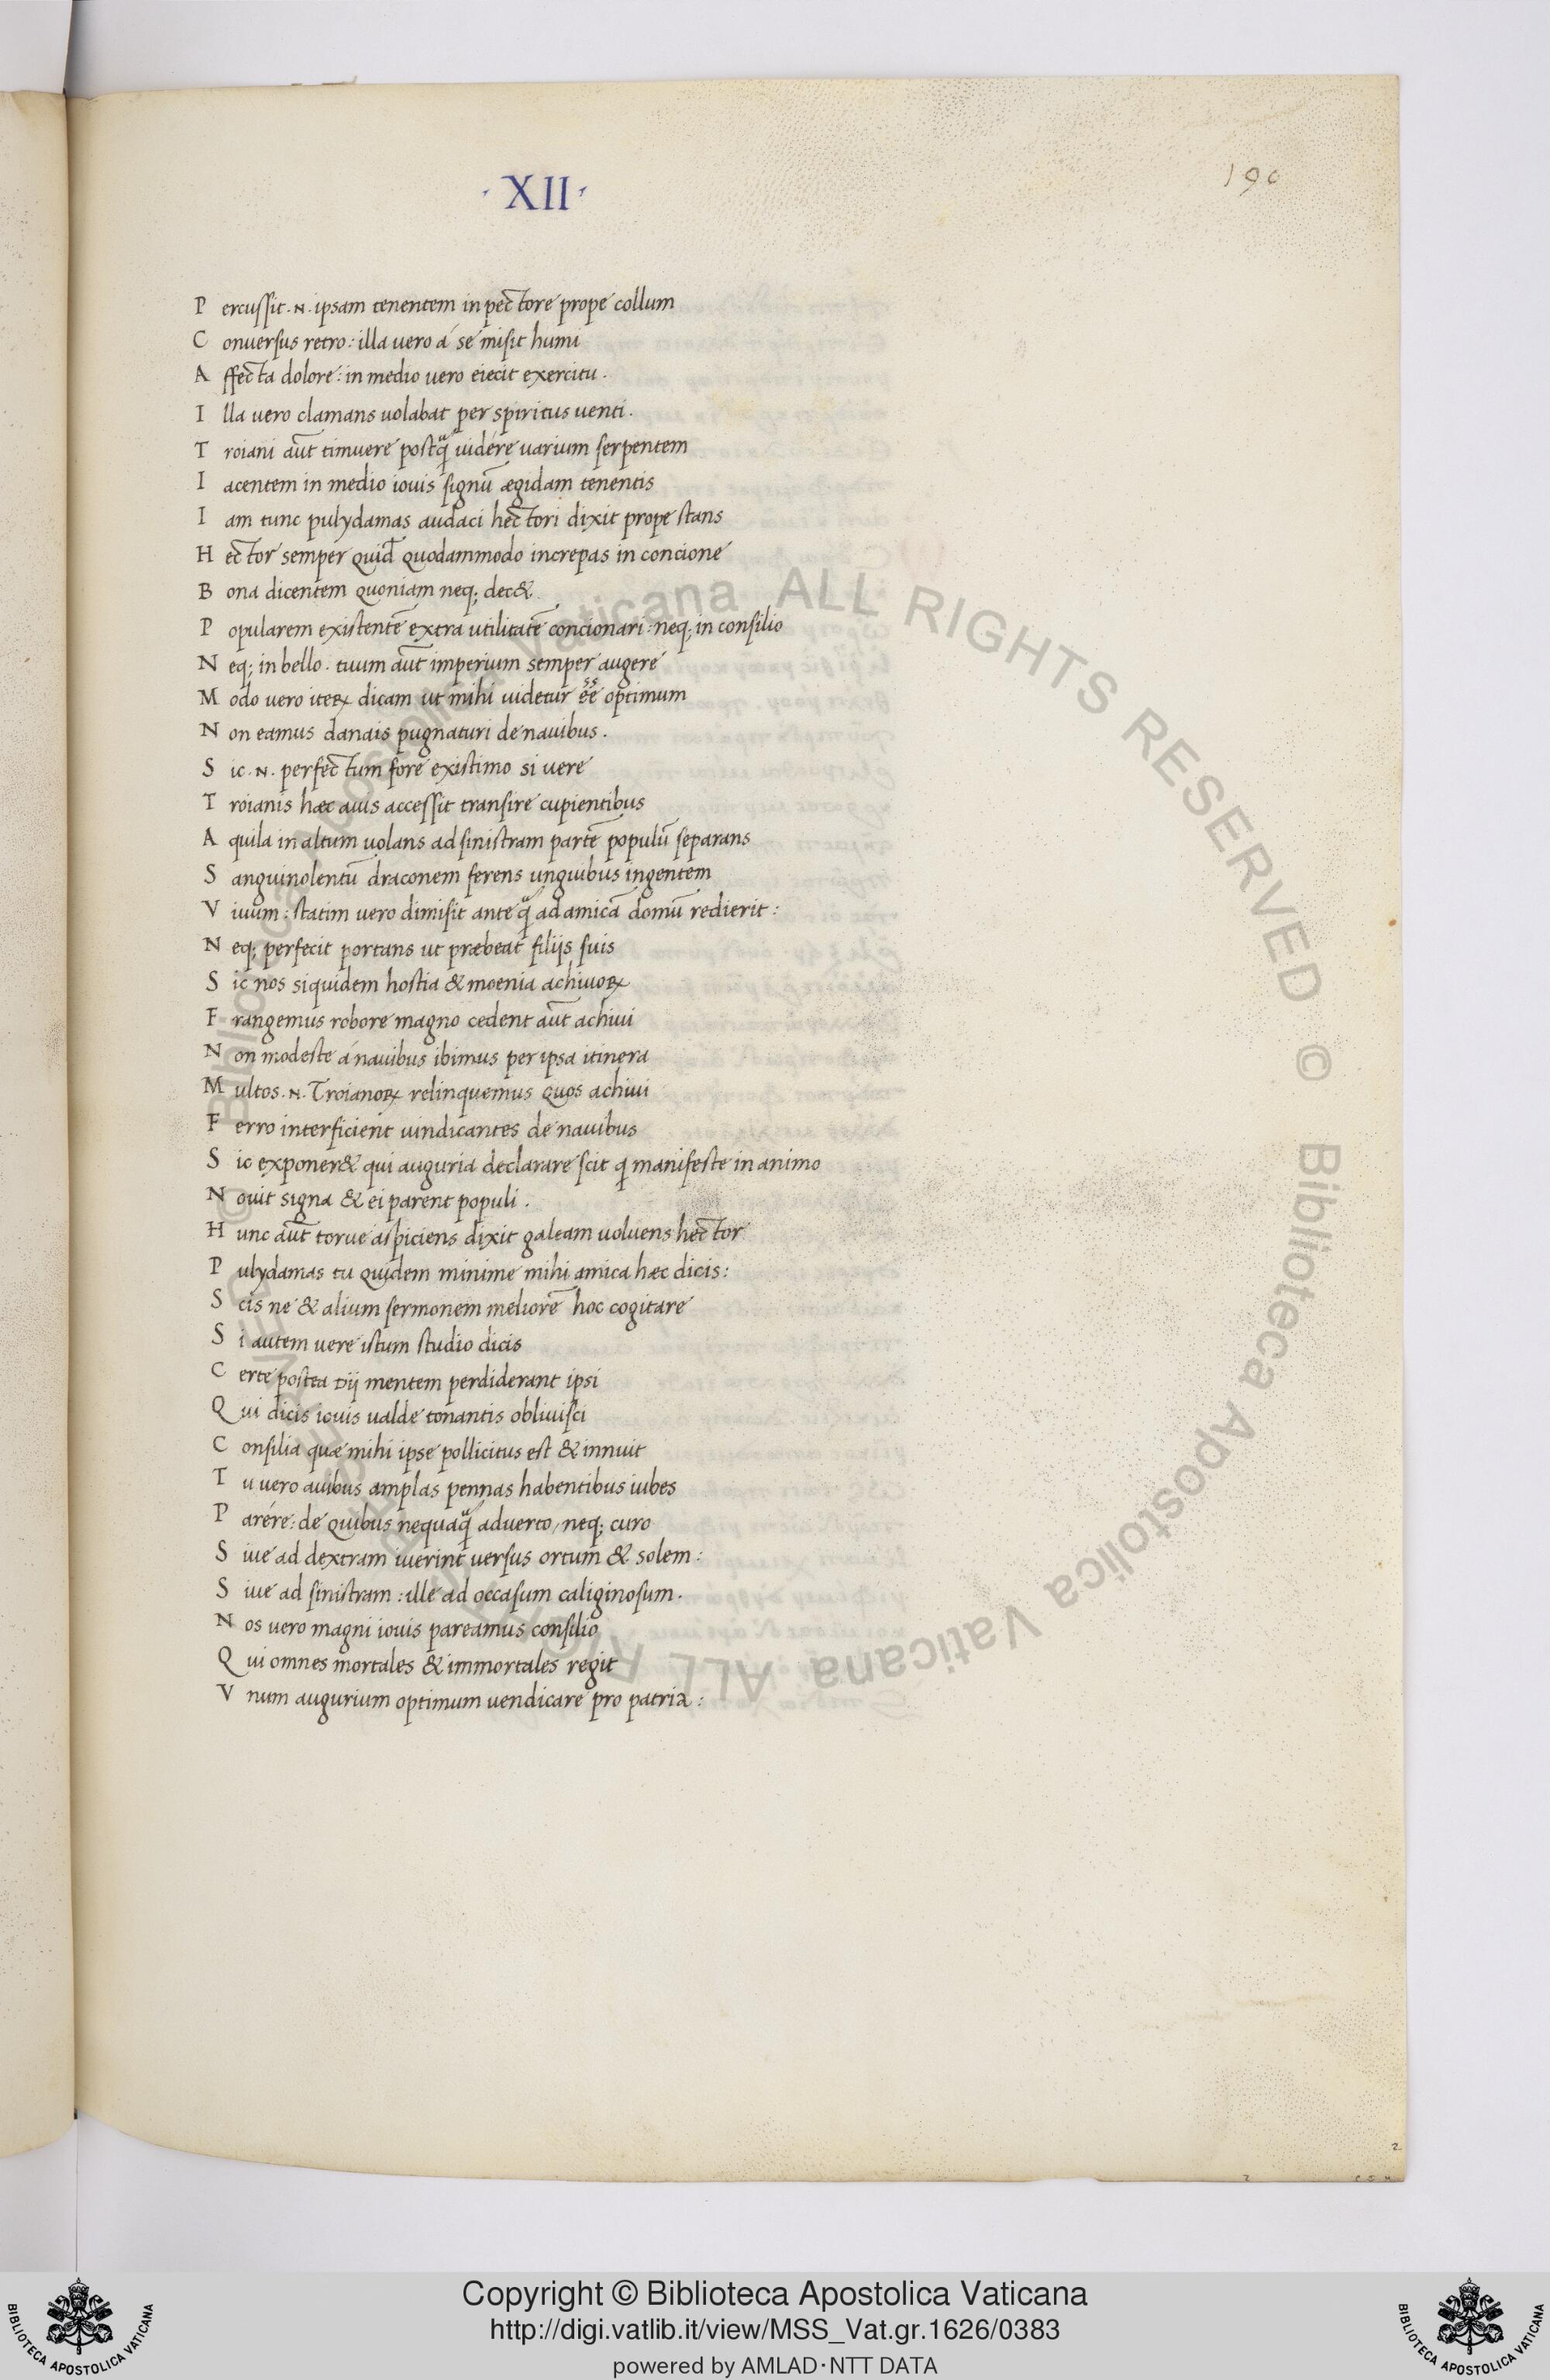 · XII ·
190
P ercussit .N. ipsam tenentem in pectore prope collum
C onuersus retro : illa uero á se misit humi
A ffecta dolore : in medio uero eiecit exercitu .
I lla uero clamans uolabat per spiritus uenti .
T roiani aūt timuere postq̄ uidére uarium serpentem
I acentem in medio iouis signū ægidam tenentis
I am tunc pulydamas audaci hectori dixit prope stans
H ector semper quid quodammodo increpas in concione
B ona dicentem quoniam neq; dec&
P opularem existentē extra utilitatē concionari : neq; in consilio
N eq; in bello . tuum aūt imperium semper augere
M odo uero iteꝝ dicam ut mihi uidetur eē optimum
N on eamus danais pugnaturi de nauibus .
S ic .N. perfectum fore existimo si uere
T roianis hæc auis accessit transire cupientibus
A quila in altum uolans ad sinistram partē populū separans
S anguinolentū draconem ferens unguibus ingentem
V iuum : statim uero dimisit ante q̄ ad amicā domū redierit :
N eq; perfecit portans ut præbeat filijs suis
S ic nos siquidem hostia & moenia achiuoꝝ
F rangemus robore magno cedent aūt achiui
N on modeste á nauibus ibimus per ipsa itinera
M ultos .N. Troianoꝝ relinquemus quos achiui
F erro interficient uindicantes de nauibus
S ic exponer& qui auguria declarare scit q manifeste in animo
N ouit signa & ei parent populi .
H unc aūt torue aspiciens dixit galeam uoluens hector
P ulydamas tu quidem minime mihi amica hæc dicis :
S cis ne & alium sermonem meliorē hoc cogitare
S i autem uere istum studio dicis
C erte postea Dij mentem perdiderant ipsi
Q ui dicis iouis ualde tonantis obliuisci
C onsilia quæ mihi ipse pollicitus est & innuit
T u uero auibus amplas pennas habentibus iubes
P arére : de quibus nequaq̄ aduerto, neq; curo
S iue ad dextram iuerint uersus ortum & solem :
S iue ad sinistram : ille ad occasum caliginosum .
N os uero magni iouis pareamus consilio
Q ui omnes mortales & immortales regit
V num augurium optimum uendicare pro patria :
Copyright © Biblioteca Apostolica Vaticana
http://digi.vatlib.it/view/MSS_Vat.gr.1626/0383
powered by AMLAD·NTT DATA
BIBLIOTECA APOSTOLICA VATICANA
BIBLIOTECA APOSTOLICA VATICANA
© Biblioteca Apostolica Vaticana ALL RIGHTS RESERVED © Biblioteca Apostolica Vaticana ALL RIGHTS RESERVED